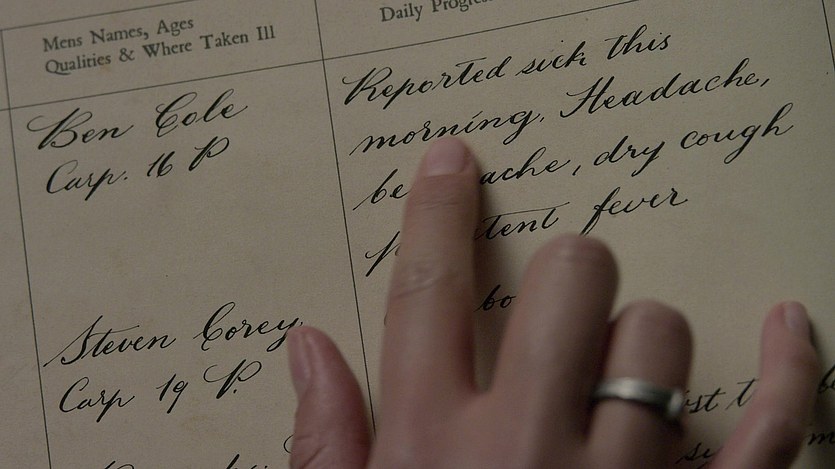 Mens Names, Ages
Qualities & Where Taken Ill
Daily
Ben Cole
Carp. 16 P
Reported sick this
morning. Headache,
ache, dry cough
fever
Steven Corey
Carp 19 P.